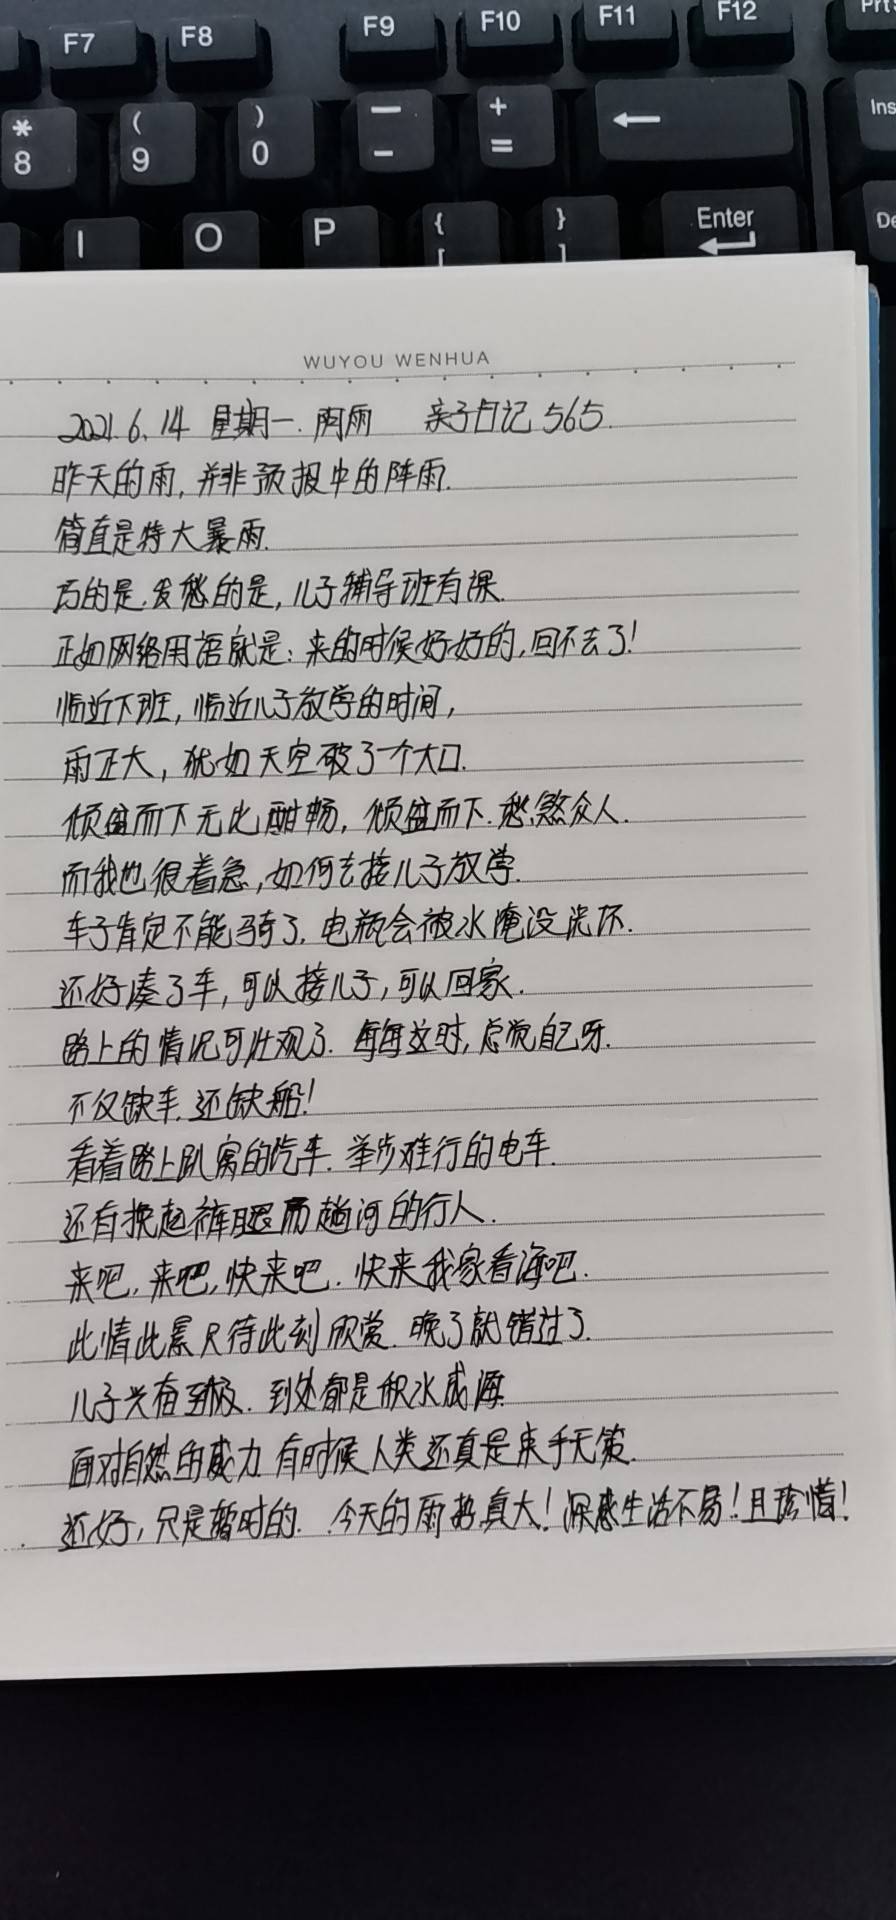 F7 F8 F9 F10 F11 F12 Prt
* 8 ( 9 ) 0 — - + = ← Ins
I O P { [ } ] Enter De
WUYOU WENHUA
2021.6.14 星期一. 阴雨 亲子日记 565.
昨天的雨, 并非预报中的阵雨.
简直是特大暴雨.
巧的是.发愁的是, 儿子辅导班有课.
正如网络用语就是: 来的时候好好的, 回不去了!
临近下班, 临近儿子放学的时间,
雨正大, 犹如天空破了一个大口.
倾盆而下无比酣畅, 倾盆而下.愁煞众人.
而我也很着急, 如何去接儿子放学.
车子肯定不能骑了. 电瓶会被水淹没浇坏.
还好凑了车, 可以接儿子, 可以回家.
路上的情况可壮观了. 每每这时, 总觉自己呀.
不仅缺车. 还缺船!
看着路上趴窝的汽车. 举步难行的电车.
还有挽起裤腿而趟河的行人.
来吧, 来吧, 快来吧. 快来我家看海吧.
此情此景只待此刻欣赏. 晚了就错过了.
儿子兴奋至极. 到处都是积水成海.
面对自然的威力. 有时候人类还真是束手无策.
还好, 只是暂时的. 今天的雨势真大! 深感生活不易! 且珍惜!